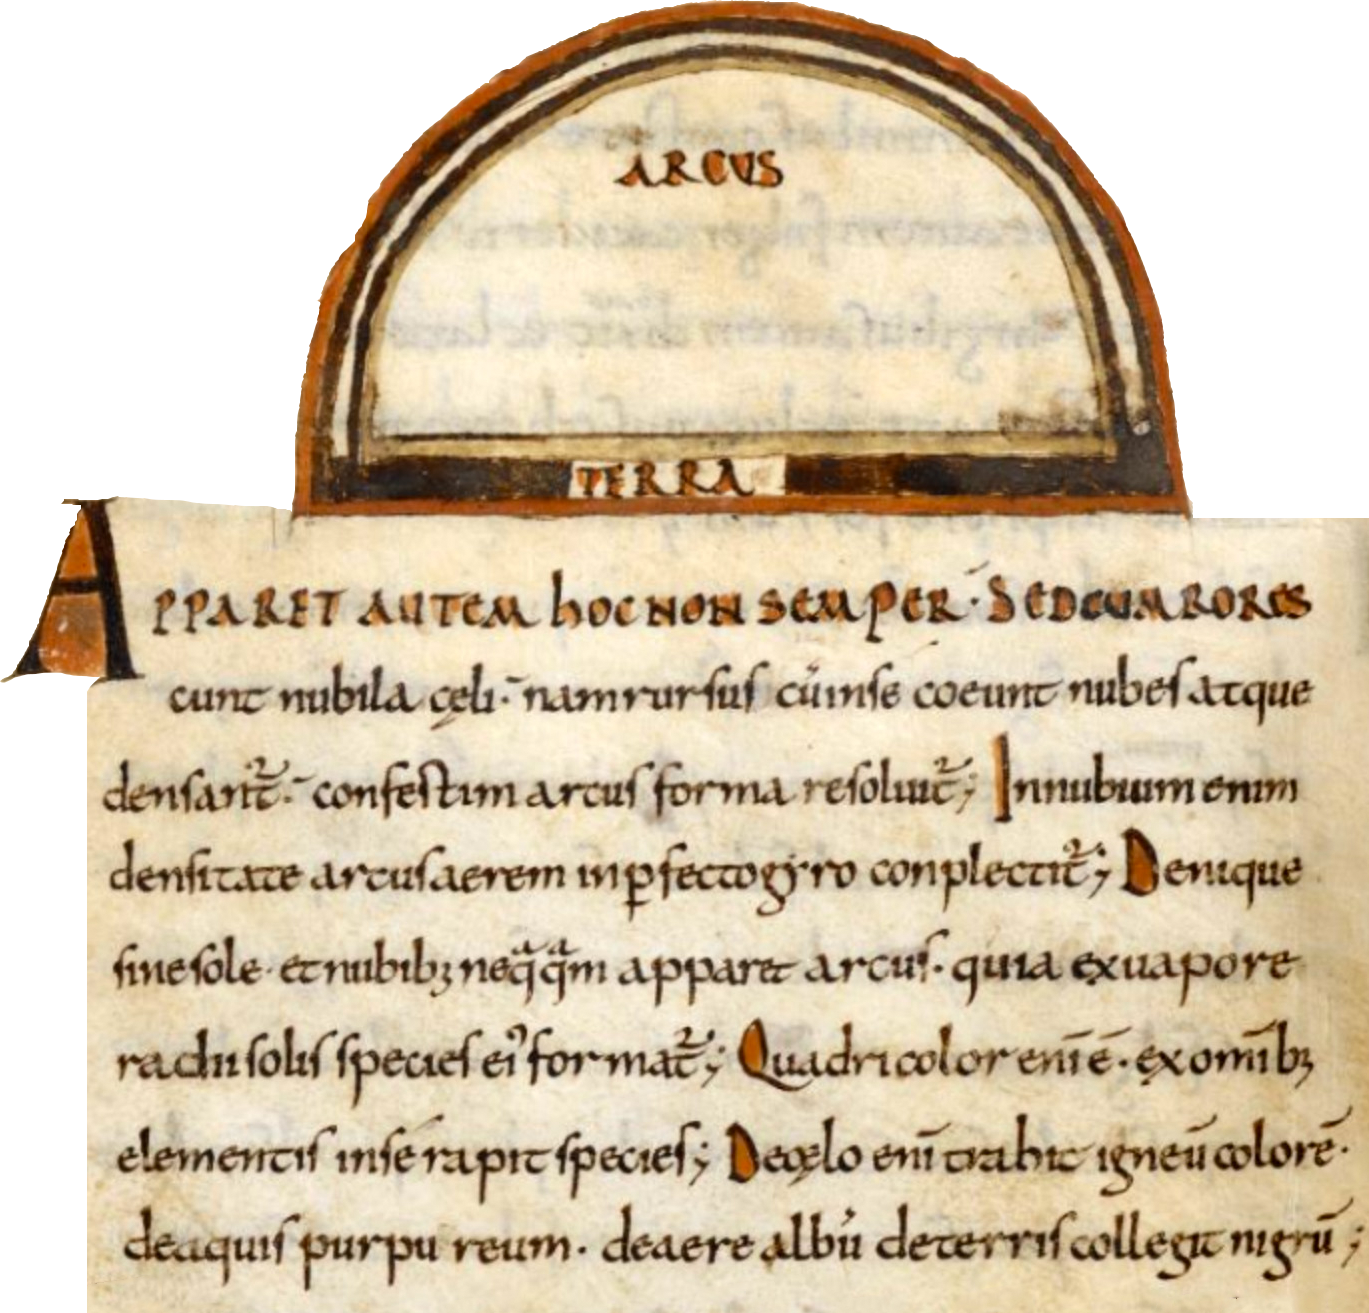 ARCUS
TERRA
APPARET AUTEM hOC NON SEMPER· SED CUM RORES
cunt nubila cęli· nam rursus cū inse coeunt nubes atque
densant᷑· confestim arcus forma resoluit᷑; In nubium enim
densitate arcus aerem inꝑfecto gyro conplectit᷑; Denique
sine sole· et nubibꝫ neqͣqͣm apparet arcus· quia ex uapore
radii solis species ei᾽ format᷑; Quadricolor enī ē· ex omībꝫ
elementis inse rapit species; De cęlo enī trahit igneū colorē·
de aquis purpureum· de aere albū de terris collegit nigrū;